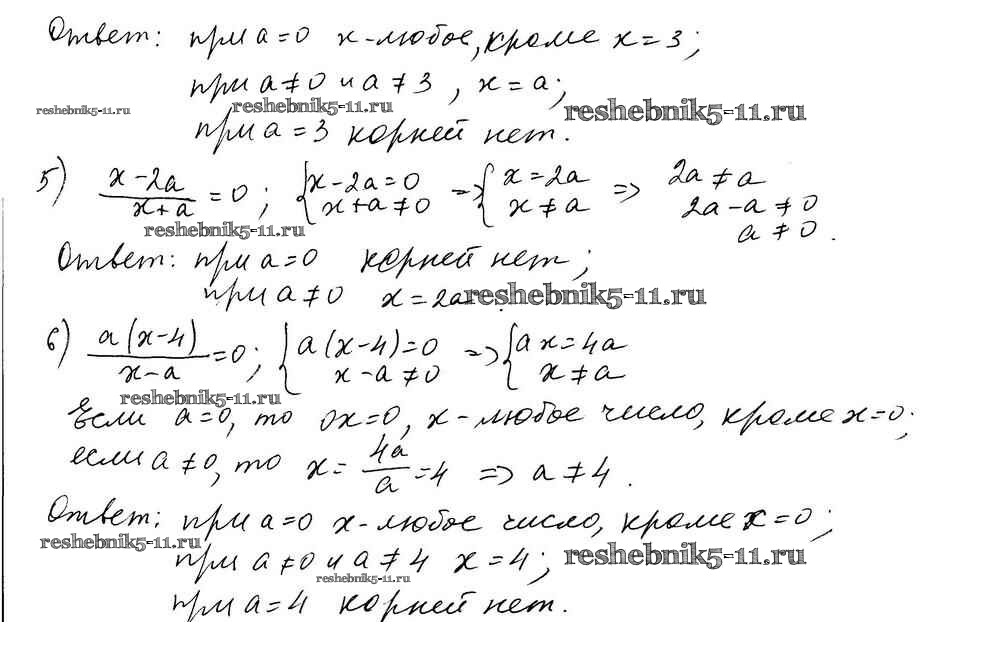 Ответ: при a=0 x-любое, кроме x=3;
при a≠0 и a≠3, x=a;
reshebnik5-11.ru reshebnik5-11.ru reshebnik5-11.ru
при a=3 корней нет.
5) (x-2a)/(x+a)=0; {x-2a=0 x+a≠0 => {x=2a x≠a => 2a≠a
2a-a≠0
a≠0.
reshebnik5-11.ru
Ответ: при a=0 корней нет;
при a≠0 x=2a reshebnik5-11.ru
6) a(x-4)/(x-a)=0; {a(x-4)=0 x-a≠0 => {ax=4a x≠a
reshebnik5-11.ru
Если a=0, то 0x=0, x-любое число, кроме x=0;
если a≠0, то x=4a/a=4 => a≠4.
Ответ: при a=0 x-любое число, кроме x=0;
reshebnik5-11.ru
при a≠0 и a≠4 x=4; reshebnik5-11.ru
reshebnik5-11.ru
при a=4 корней нет.